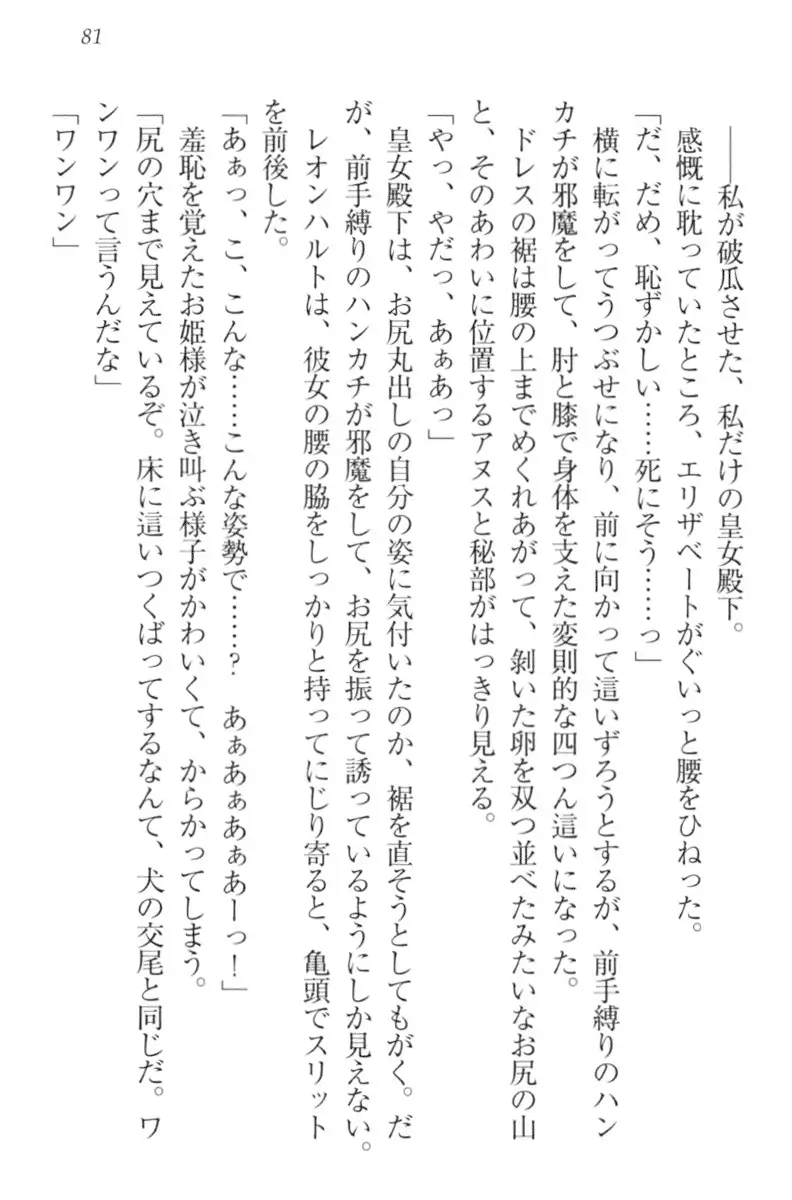 81
――私が破瓜させた、私だけの皇女殿下。
感慨に耽っていたところ、エリザベートがぐいっと腰をひねった。
「だ、だめ、恥ずかしい……死にそう……っ」
横に転がってうつぶせになり、前に向かって這いずろうとするが、前手縛りのハン
カチが邪魔をして、肘と膝で身体を支えた変則的な四つん這いになった。
ドレスの裾は腰の上までめくれあがって、剝いた卵を双つ並べたみたいなお尻の山
と、そのあわいに位置するアヌスと秘部がはっきり見える。
「やっ、やだっ、あぁあっ」
皇女殿下は、お尻丸出しの自分の姿に気付いたのか、裾を直そうとしてもがく。だ
が、前手縛りのハンカチが邪魔をして、お尻を振って誘っているようにしか見えない。
レオンハルトは、彼女の腰の脇をしっかりと持ってにじり寄ると、亀頭でスリット
を前後した。
「あぁっ、こ、こんな……こんな姿勢で……?　あぁあぁあぁあーっ！」
羞恥を覚えたお姫様が泣き叫ぶ様子がかわいくて、からかってしまう。
「尻の穴まで見えているぞ。床に這いつくばってするなんて、犬の交尾と同じだ。ワ
ンワンって言うんだな」
「ワンワン」